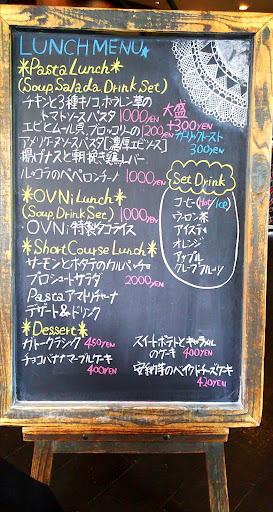 LUNCH MENU
*Pasta Lunch*
(Soup, Salada, Drink Set)
チキンと3種キノコ、ホウレン草の
トマトソースパスタ 1000YEN
エビとムール貝、ブロッコリーの 1200YEN
アメリケーヌソースパスタ[濃厚エビソース]
揚げナスと朝挽き鶏レバー
ルッコラのペペロンチーノ 1000YEN
大盛
+300YEN
ガーリックトースト
300YEN
*OVNi Lunch*
(Soup, Drink Set) 1000YEN
OVNi 特製タコライス
Set Drink
コーヒー(Hot/Ice)
ウーロン茶
アイスティ
オレンジ
アップル
グレープフルーツ
*Short Course Lunch*
サーモンとホタテのカルパッチョ
プロシュートサラダ 2000YEN
Pasta アマトリチャーナ
デザート&ドリンク
*Dessert*
ガトークラシック 450YEN
チョコバナナマーブルケーキ
400YEN
スイートポテトとキャラメル
のケーキ 400YEN
安納芋のベイクドチーズケーキ
420YEN